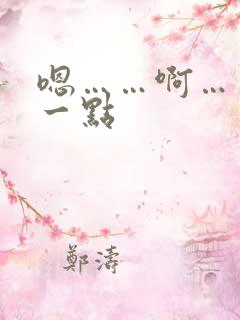 嗯……啊…
一點
鄭濤